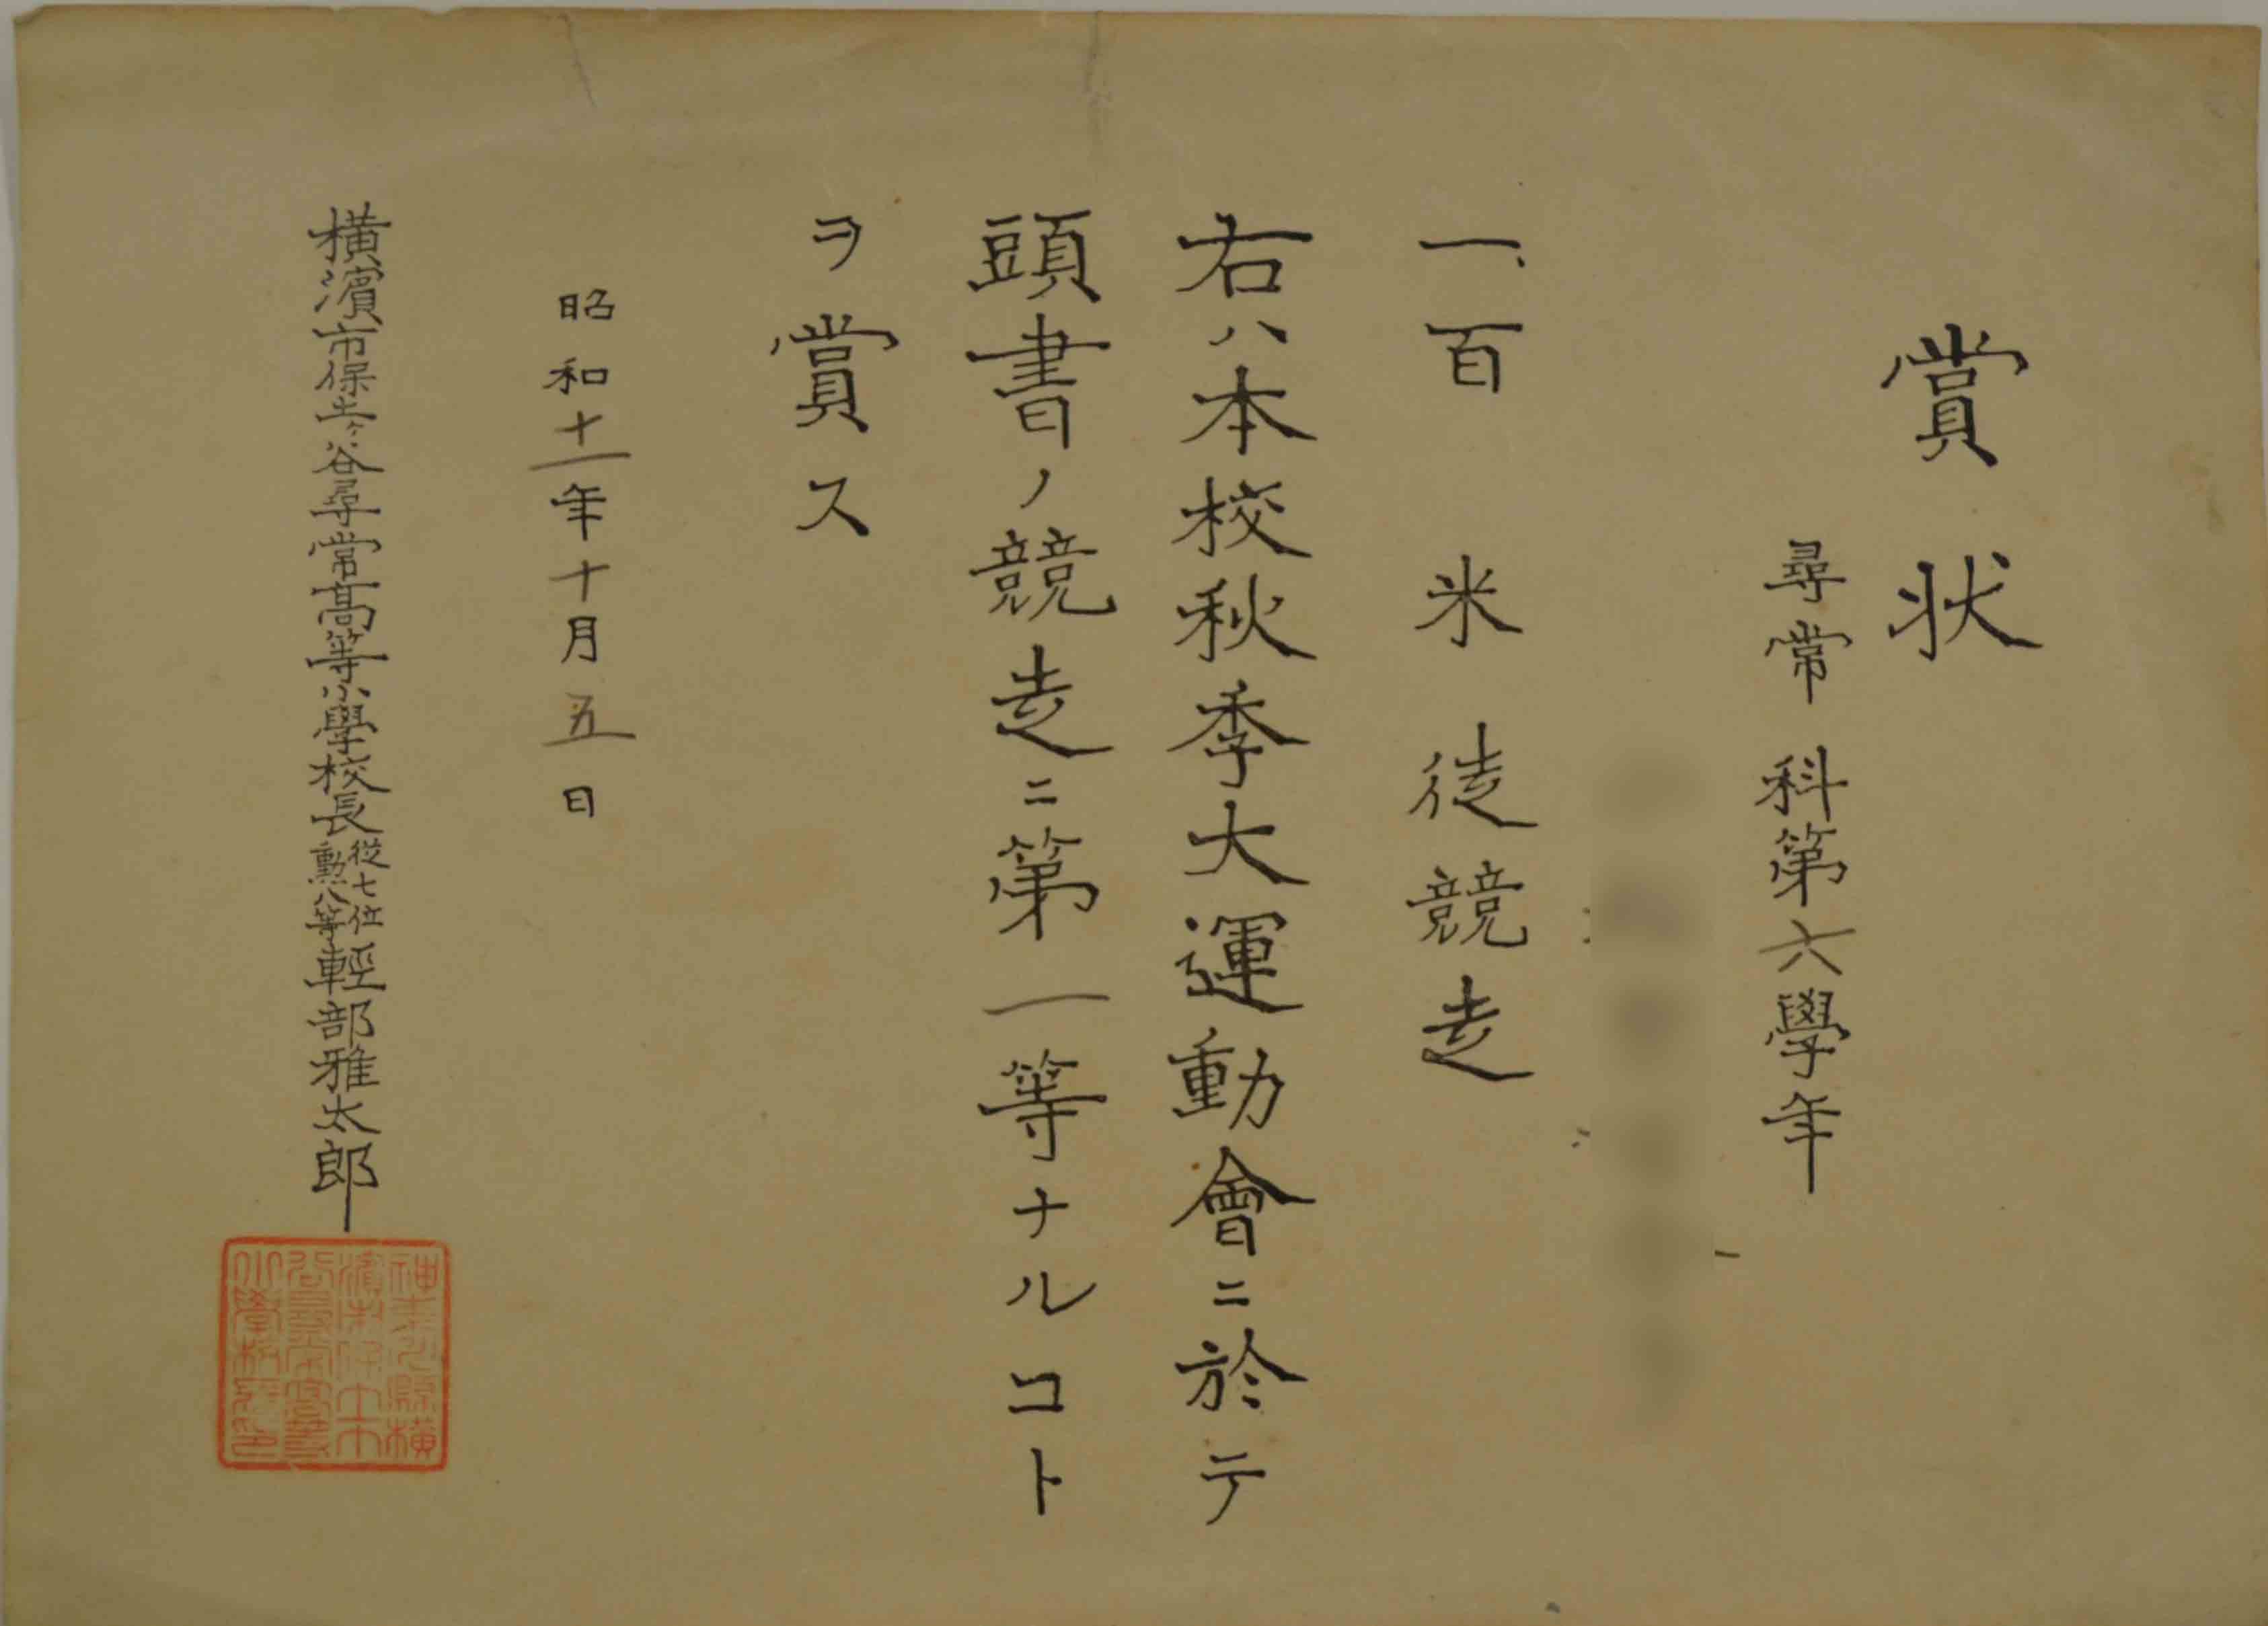 賞状
尋常科第六學年
一、百米徒競走
右ハ本校秋季大運動會ニ於テ
頭書ノ競走ニ第一等ナルコト
ヲ賞ス
昭和十一年十月五日
横濱市保土ヶ谷尋常高等小學校長從七位勲八等輕部雅太郎
神奈川縣横
濱市保土ヶ
谷尋常高等
小學校長印